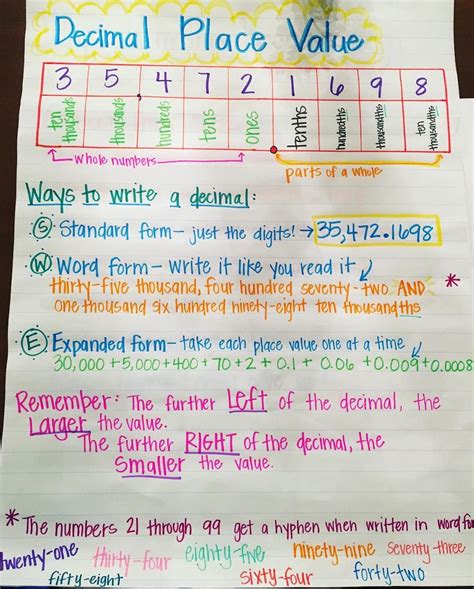 Decimal Place Value
3 5, 4 7 2 . 1 6 9 8
ten thousands thousands hundreds tens ones tenths hundredths thousandths ten thousandths
whole numbers
parts of a whole
Ways to write a decimal:
S Standard form – just the digits! → 35,472.1698
W Word form – write it like you read it
thirty-five thousand, four hundred seventy-two AND *
one thousand six hundred ninety-eight ten thousandths
E Expanded form – take each place value one at a time
30,000 + 5,000 + 400 + 70 + 2 + 0.1 + 0.06 + 0.009 + 0.0008
Remember: The further Left of the decimal, the
Larger the value.
The further RIGHT of the decimal, the
Smaller the value.
* The numbers 21 through 99 get a hyphen when written in word for
twenty-one thirty-four eighty-five ninety-nine seventy-three
fifty-eight sixty-four forty-two